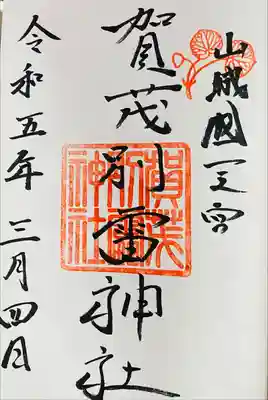 山城國一之宮
賀茂別雷神社
賀茂別雷神社
令和五年三月四日